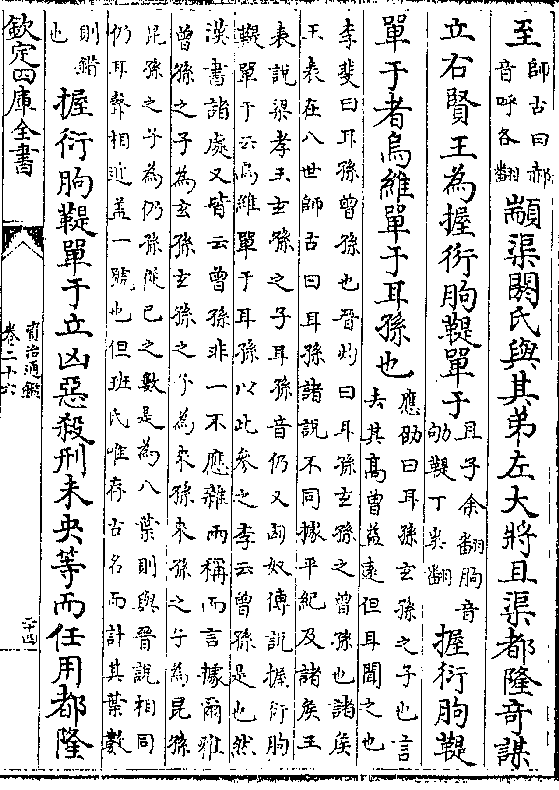 至
師古曰郝
音呼各翻
顓渠閼氏與其弟左大將且渠都隆竒謀
立右賢王為握衍朐鞮單于
且子余翻朐音
劬鞮丁奚翻
握衍朐鞮
單于者烏維單于耳孫也
應劭曰耳孫玄孫之子也言
去其髙曾益遠但耳聞之也
李斐曰耳孫曾孫也晉灼曰耳孫玄孫之曾孫也諸侯
王表在八世師古曰耳孫諸說不同據平紀及諸侯王
表說梁孝王玄孫之子耳孫音仍又匈奴傳說握衍朐
鞮單于云烏維單于耳孫以此參之李云曾孫是也然
漢書諸處又皆云曾孫非一不應雜兩稱而言據爾雅
曾孫之子為玄孫玄孫之子為來孫來孫之子為昆孫
昆孫之子為仍孫從已之數是為八葉則與晉說相同
仍耳聲相近葢一號也但班氏唯存古名而計其葉數
則錯
也
握衍朐鞮單于立凶惡殺刑未央等而任用都隆
欽定四庫全書
資治通鑑
卷二十六
二十四